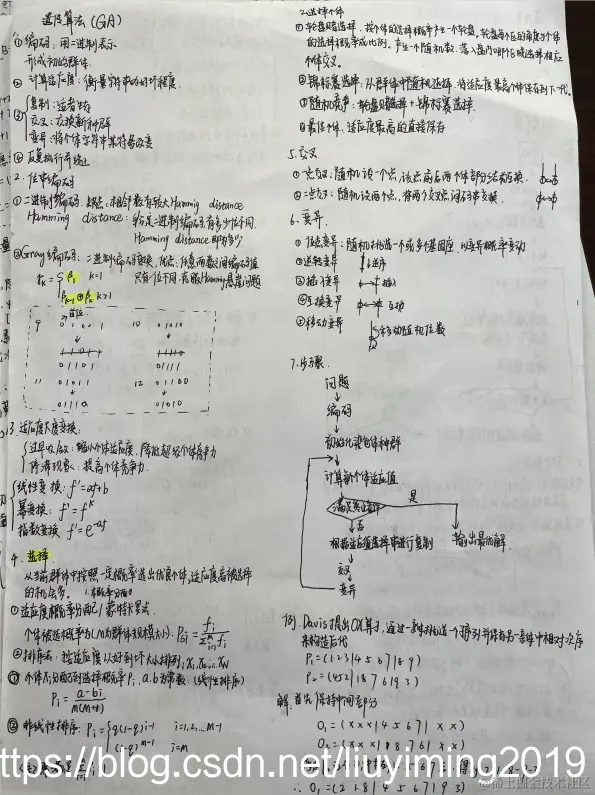 遗传算法(GA)
①编码:用二进制表示
形成初始群体
②计算适应度:衡量字符串的好坏程度
③ 复制:适者生存
交叉:交换新种群
变异:将个体字符串某符号改变
④反复执行③
2. 位串编码
①二进制编码:缺点:相邻数有较大Hamming distance
Hamming distance:给定二进制编码有多少位不同,
Hamming distance即为多少
②Gray编码:二进制编码变换,优点:任意两数之间编码值
只有一位不同,克服Hamming悬崖问题
k=1
k>1
9 01001 10 01010
01101
11 01011 12 01100
01110 01010
3.适应度尺度变换
过早收敛:缩小个体适应度,降低超级个体竞争力
停滞现象:提高个体竞争力
线性变换:f'=af+b
幂变换:f'=f^k
指数变换 f'=e^-af
4. 选择
从当前群体中按照一定概率选出优良个体,适应度高被选择
的机会多。
①适应度概率分配/蒙特卡罗法
②排序法:按适应度从好到坏大小排列:x₁,x₂,...xₙ
(线性排序)
Pi = a-bi / M(M+1)
②非线性排序:Pi = q(1-q)^i-1 i=1,2,...M-1
(1-q)^M-1 i=M
2.选择个体
①轮盘赌选择,按个体的选择概率产生一个轮盘,轮盘每个区的角度与个体
的选择概率成比例。产生一个随机数,落入盘内哪个区域选择相应
个体交叉。
②锦标赛选择:从群体中随机选择,将适应度最高个体保存到下一代。
③随机竞争:轮盘赌选择+锦标赛选择
④最佳个体,适应度最高的直接保存
5.交叉
①一点交叉:随机设一个点,该点前后两个体部分结构互换
②二点交叉:随机设两个点,将两个交叉点间码串交换
6.变异
①位点变异:随机挑选一个或多个基因座,以变异概率变动
②逆转变异 逆序
③插入变异
④互换变异 互换
⑤移动变异 移动随机位数
7.步骤
问题
编码
初始化染色体种群
计算每个个体适应值
满足终止条件
是
输出最的解
根据适应值选择串进行复制
交叉
变异
例. Davis提出OX算子,通过一亲体挑选一个子序列并保存另一亲体中相对次序
来构造后代
P₁=(123|4567|89)
P₂=(452|1876|93)
解:首先保持中间部分
O₁=(xxx|4567|xx)
O₂=(xxx|1876|xx)
∴ O₁=(218|4567|93)
https://blog.csdn.net/liuyiming2019
@稀土掘金技术社区